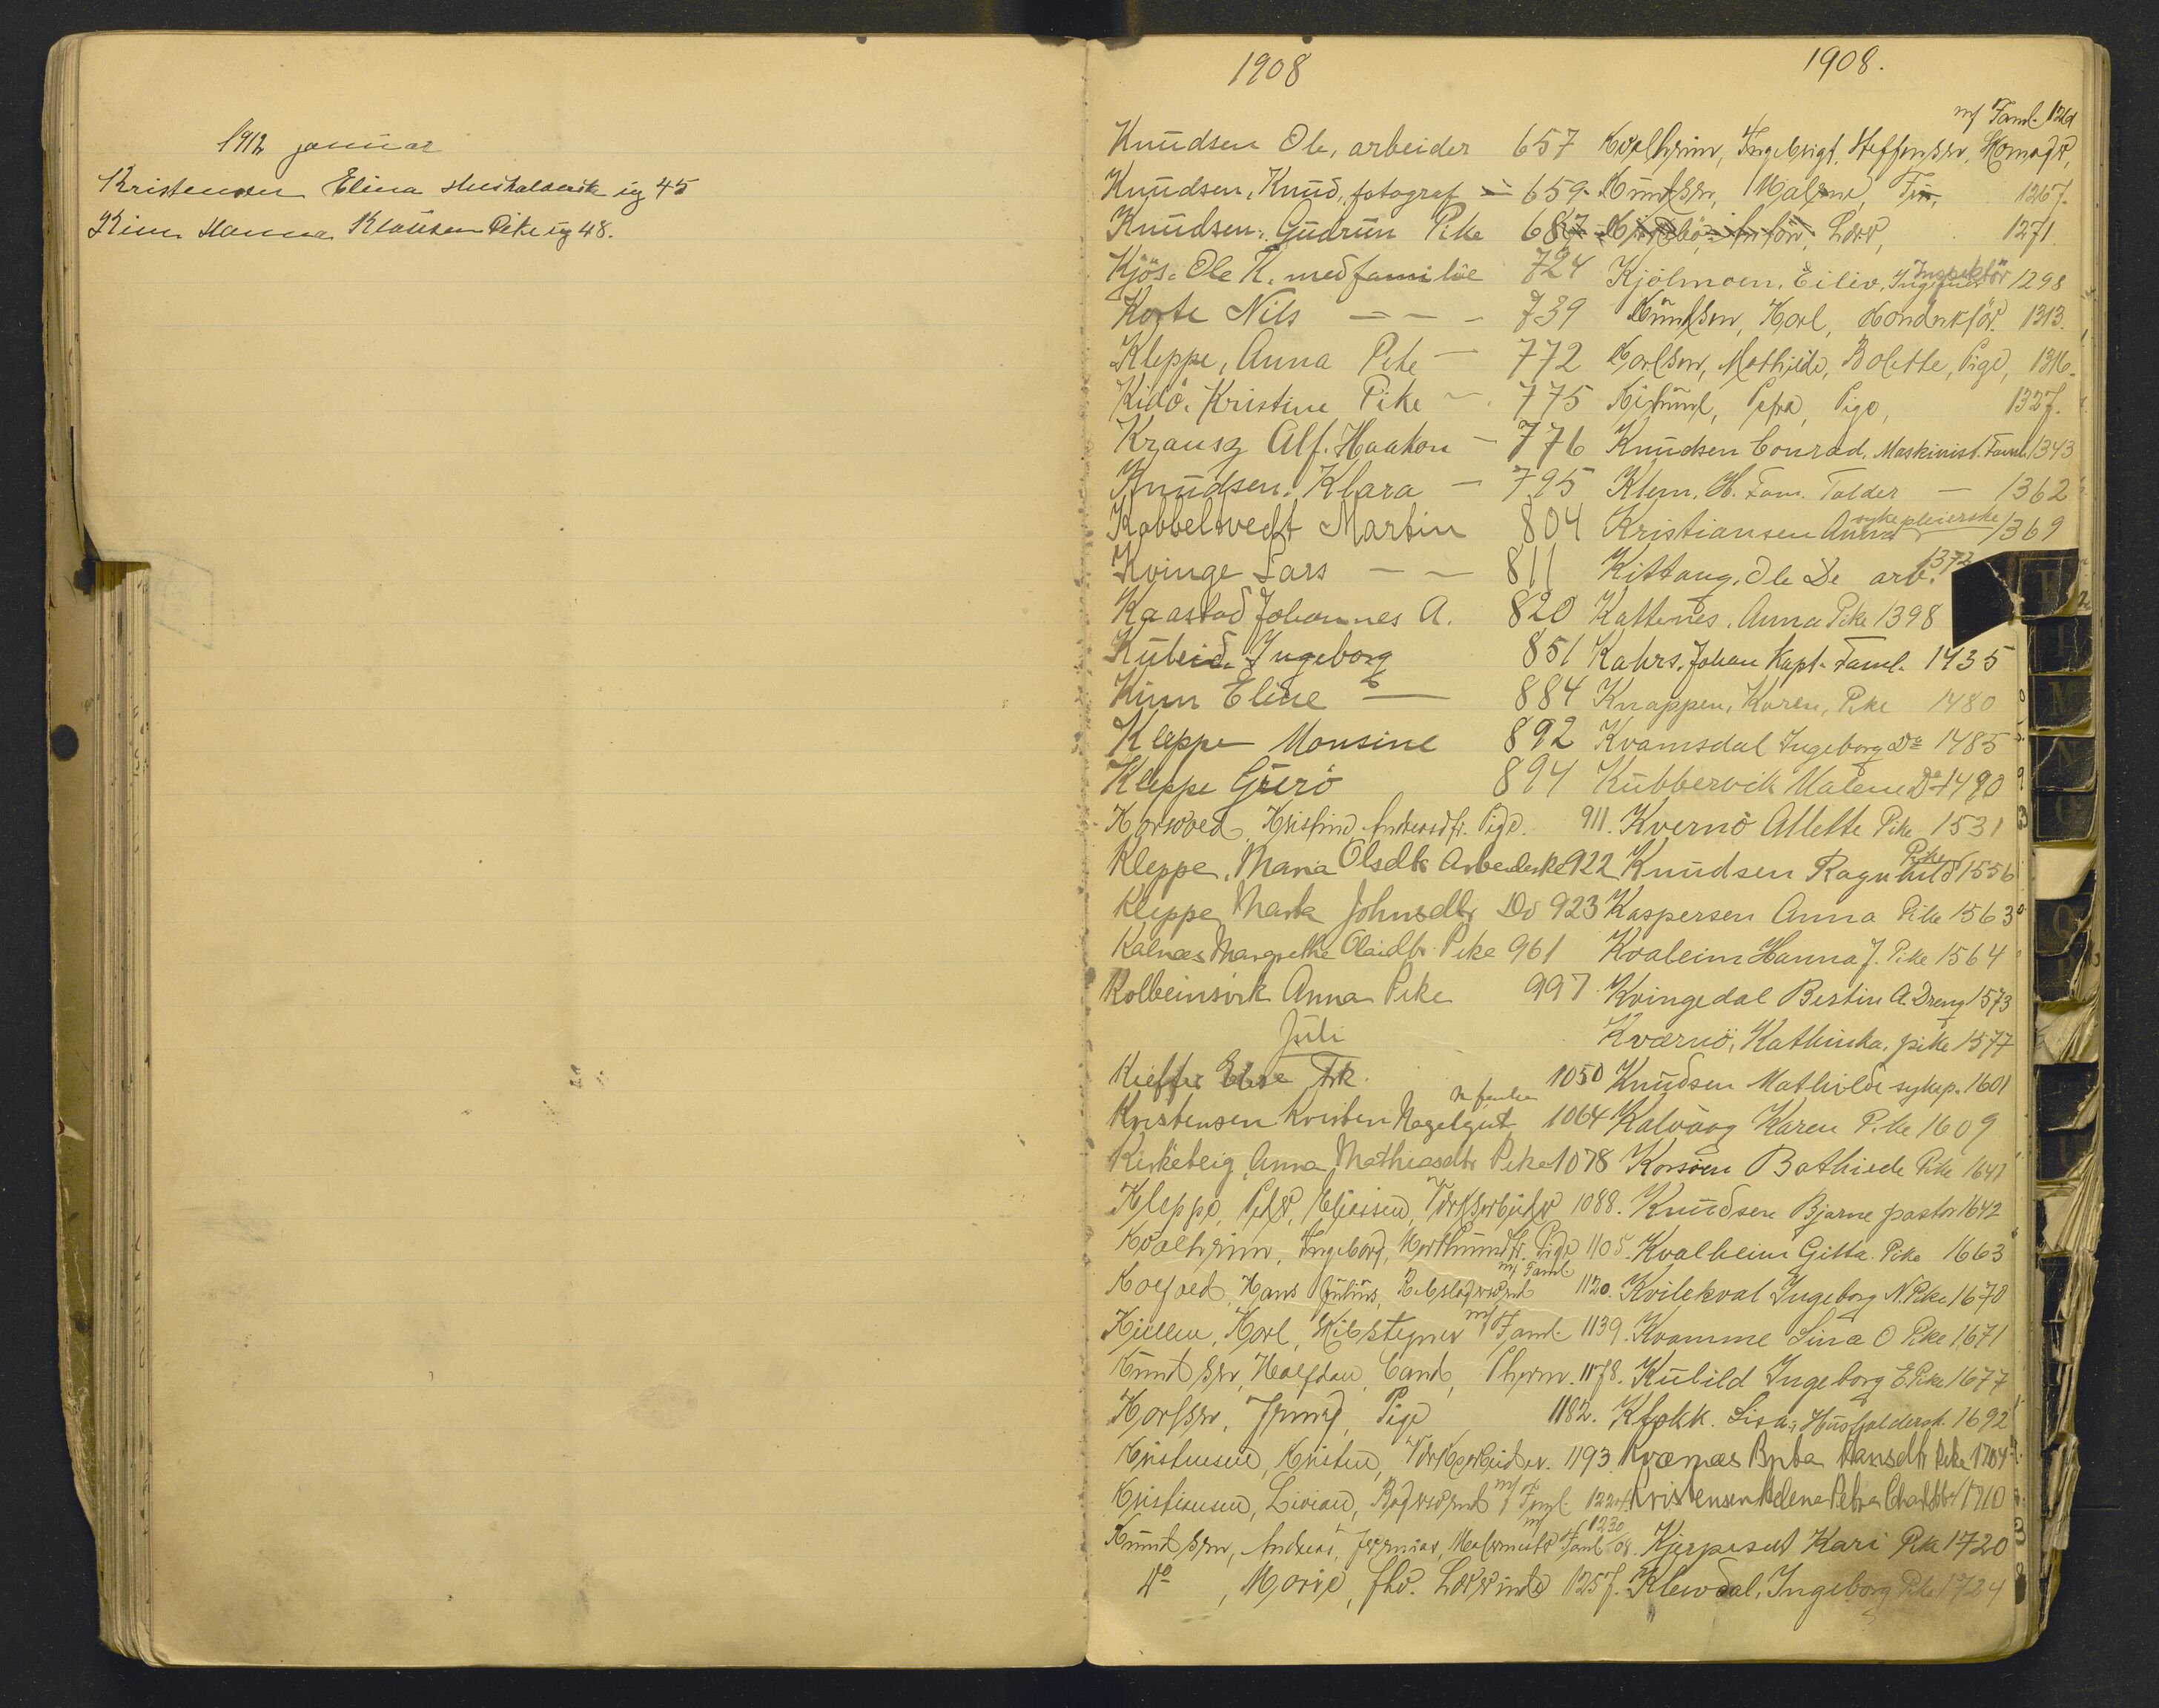 1912 januar
Kristensen Elina Husholderske ig 45
Kinn Hanna Klausen Pike ig 48.
1908
Knudsen Ole, arbeider 657
Knudsen, Knud, fotograf — 659
Knudsen, Gudrun Pike 687
Kjös, Ole K. med familie 724
Korte Nils — — — 739
Kleppe, Anna Pike — 772
Kidö, Kristine Pike — 775
Krausz Alf. Haakon — 776
Knudsen, Klara — 795
Kobbeltvedt Martin 804
Kvinge Lars — — 811
Kaastad Johannes A. 820
Kubeid. Ingeborg 851
Kinn Eline — 884
Kleppe Monsine 892
Kleppe Guro 894
Kristine Andersdtr. Pige. 911.
Kleppe, Maria Olsdtr Arbeiderske 922
Kleppe, Marta Johnsdtr Do 923
Kalnæs Margrethe Olaidtr Pike 961
Kolbeinsvik Anna Pike 997
Juli
Kieffer Frk. 1050
Kristensen Kristen 1064
Kirketeig, Anna Mathiasdtr Pike 1078
Kleppe, Peder, Eliassen, 1088.
Kvalheim, Ingeborg, Pige 1105.
m/ Faml.
Koefoed, Hans Julius, 1120.
Killen, Karl, m/ Faml. 1139.
Knudsen, Halfdan, Cand, Pharm. 1178.
Karlsen, Pige 1182.
Kristensen, Kristen, 1193.
Kristiansen, m/ Faml.
Knudsen, Andreas, m/ Faml 1230/08.
Do, Marie, 1257.
1908.
m/ Faml.
Kvalheim, Ingebrigt, Steffensen, Skomager,
Knudsen, Malene, 1267.
1271.
Kjölmoen, Eiliv, Inspektör 1298
Knudsen, Karl, Konduktör. 1313.
Karlsen, Mathilde, Bolette, Pige, 1316.
Petra, Pige, 1327.
Knudsen Conrad, Maskinist. Faml. 1343
Klem, H. Fam. Tolder — 1362
Kristiansen Anna sykepleierske 1369
Kittang, Ole De arb. 1372
Kattenes, Anna Pike 1398
Kahrs, Johan Kapt. Faml. 1435
Knappen, Karen, Pike 1480
Kvamsdal Ingeborg Do 1485
Kubbervik Malene Do 1490
Kvernö Allette Pike 1531
Knudsen Ragnhild Pike 1556
Kaspersen Anna Pike 1563
Kvaleim Hanna J. Pike 1564
Kvingedal Bertin A. Dreng 1573
Kværnö, Kathinka, pike 1577
Knudsen Mathilde sykep. 1601
Kalvaag Karen Pike 1609
Korsöen Bathilde Pike 1641
Knudsen Bjarne pastor 1642
Kvalheim Gitta. Pike 1663
Kvilekval Ingeborg N. Pike 1670
Kvamme Lina O Pike 1671
Kubild Ingeborg E. Pike 1677
Klokk. Lisa, Husholderst. 1692
Kvænæs Hansdtr Pike 1704
Kristensen Petra 1710
Kjerpeset Kari Pike 1720
Klevdal, Ingeborg Pike 1724
M
N